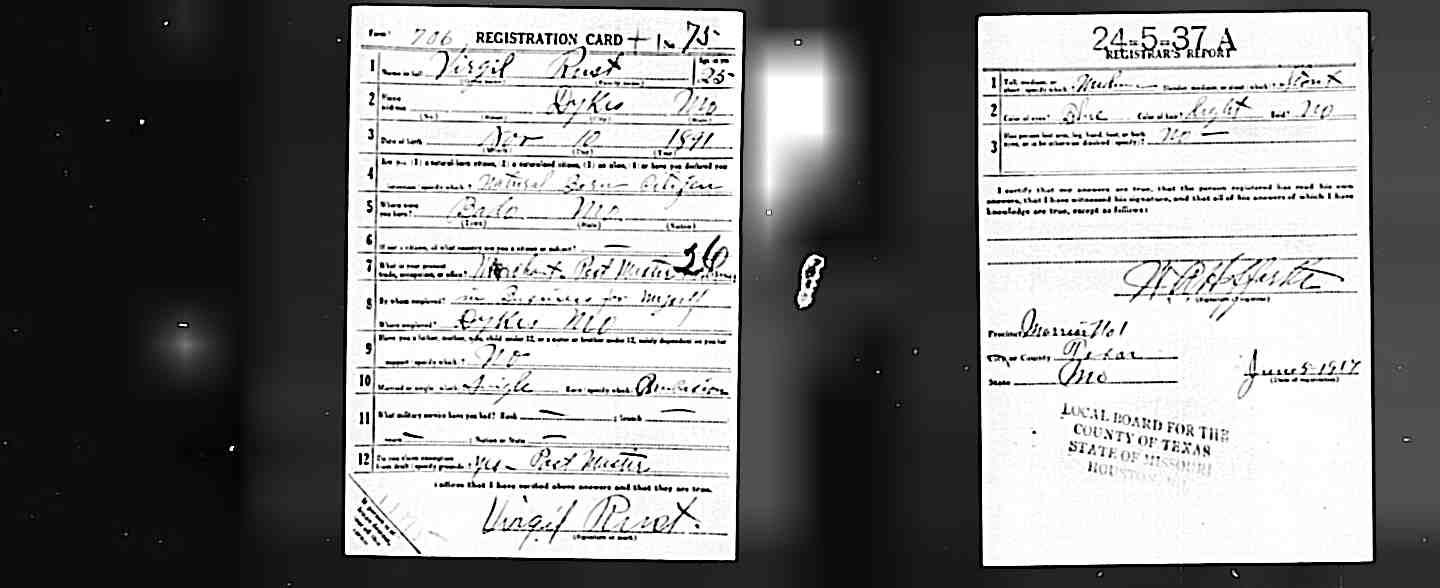 Form 1 706 REGISTRATION CARD No. 75
1 Name in full Virgil Rust Age in yrs 25
(Given name) (Family name)
2 Home address Dykes Mo
(No.) (Street) (City) (State)
3 Date of birth Nov 10 1891
(Month) (Day) (Year)
4 Are you (1) a natural-born citizen, (2) a naturalized citizen, (3) an alien, (4) or have you declared your
intention (specify which)? Natural Born Citizen
5 Where were you born? Bado Mo
(Town) (State) (Nation)
6 If not a citizen, of what country are you a citizen or subject? —
7 What is your present trade, occupation, or office? Merchant Post Master 26
8 By whom employed? in Business for Myself
Where employed? Dykes Mo
9 Have you a father, mother, wife, child under 12, or a sister or brother under 12, solely dependent on you for
support (specify which)? No
10 Married or single (which)? Single Race (specify which)?
11 What military service have you had? Rank — ; branch —
years — ; Nation or State —
12 Do you claim exemption from draft (specify grounds)? Yes - Post Master
I affirm that I have verified above answers and that they are true.
Virgil Rust.
(Signature or mark)
24-5-37 A
REGISTRAR'S REPORT
1 Tall, medium, or short (specify which)? Medium Slender, medium, or stout (which)? Stout
2 Color of eyes? Blue Color of hair? Light Bald? No
3 Has person lost arm, leg, hand, foot, or both eyes, or is he otherwise disabled (specify)? No —
I certify that my answers are true, that the person registered has read his own
answers, that I have witnessed his signature, and that all of his answers of which I have
knowledge are true, except as follows:
(Signature of registrar)
Precinct Morris No 1
City or County Texas
State Mo
June 5-1917
(Date of registration)
LOCAL BOARD FOR THE
COUNTY OF TEXAS
STATE OF MISSOURI
HOUSTON, MO.